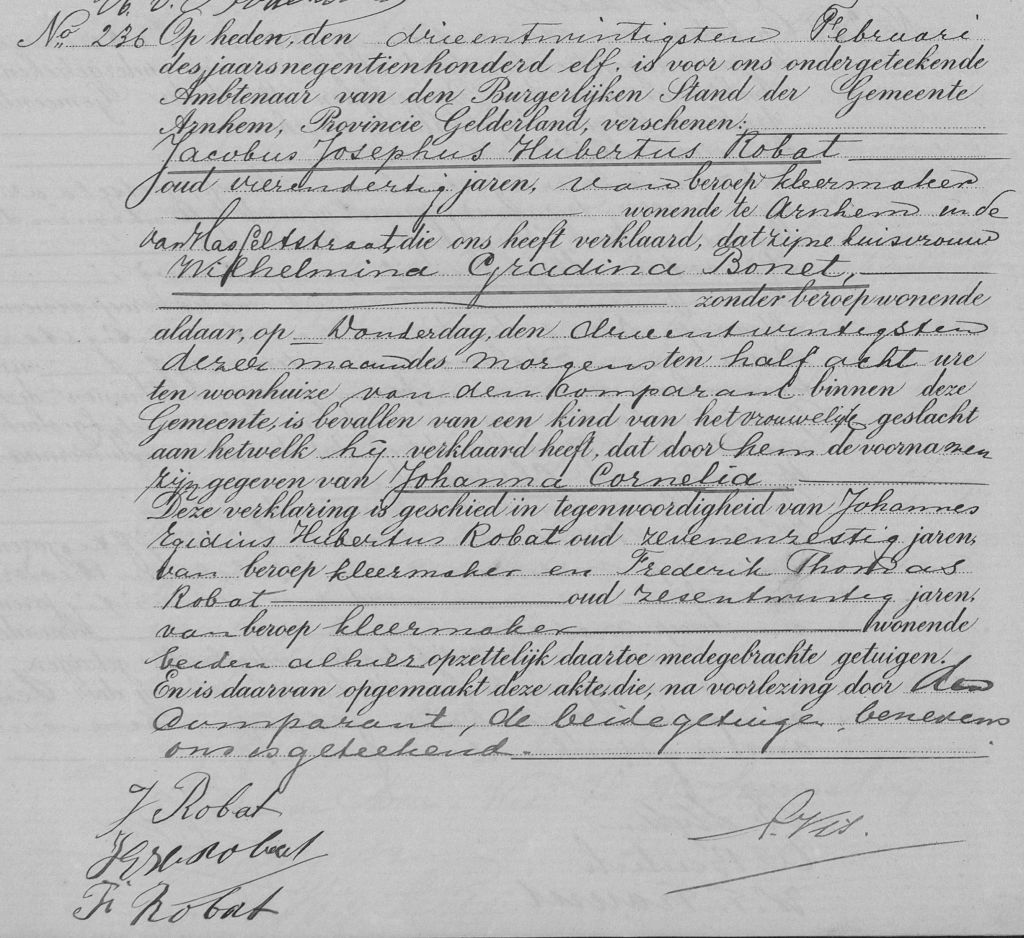 No. 236 Op heden, den drieentwintigsten Februari
des jaars negentienhonderd elf, is voor ons ondergeteekende
Ambtenaar van den Burgerlijken Stand der Gemeente
Arnhem, Provincie Gelderland, verschenen:
Jacobus Josephus Hubertus Robat
oud vierendertig jaren, van beroep kleermaker
wonende te Arnhem in de
van Hasseltstraat, die ons heeft verklaard, dat zijne huisvrouw
Wilhelmina Gradina Bonet,
zonder beroep wonende
aldaar, op Donderdag, den drieentwintigsten
dezer maand des morgens ten half acht ure
ten woonhuize van den comparant binnen deze
Gemeente, is bevallen van een kind van het vrouwelijk geslacht
aan hetwelk hij verklaard heeft, dat door hem de voornamen
zijn gegeven van Johanna Cornelia
Deze verklaring is geschied in tegenwoordigheid van Johannes
Egidius Hubertus Robat oud zevenenzestig jaren,
van beroep kleermaker en Frederik Thomas
Robat, oud zesentwintig jaren,
van beroep kleermaker wonende
beiden alhier opzettelijk daartoe medegebrachte getuigen.
En is daarvan opgemaakt deze akte, die, na voorlezing door den
Comparant, de beide getuigen, benevens
ons is geteekend.
J Robat
P. Vis.
J E H Robat
F. Robat